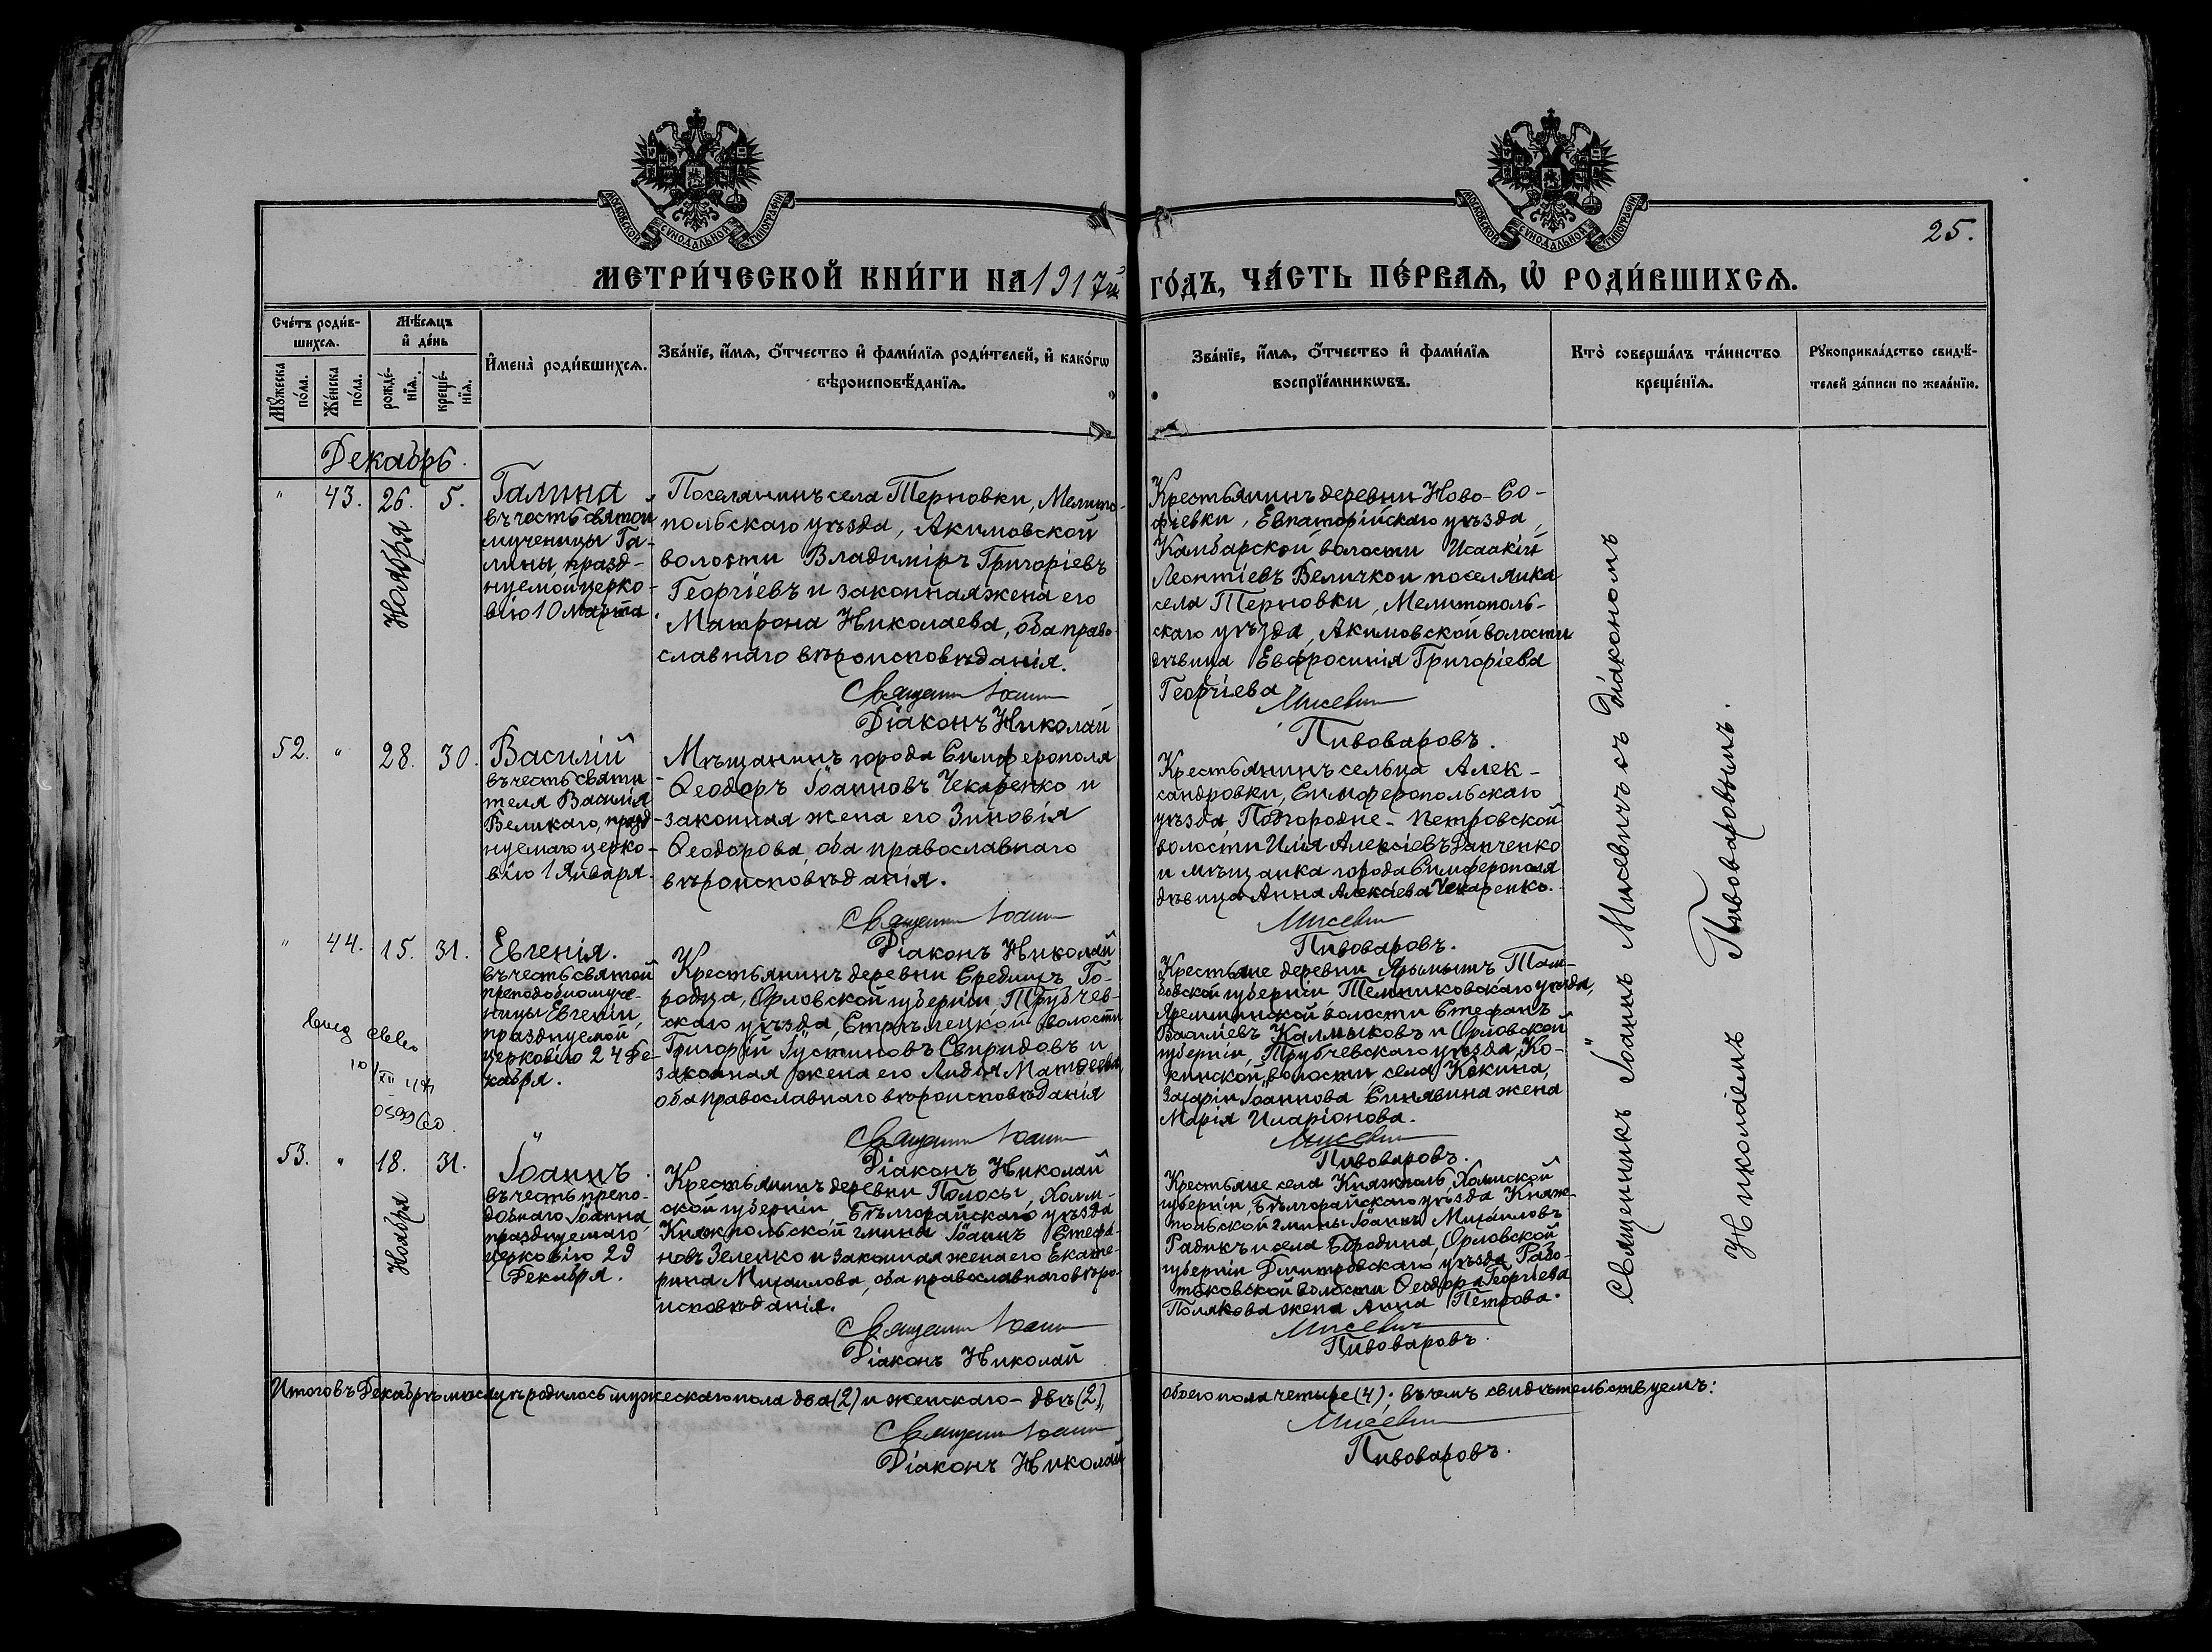 МОСКОВСКОЙ СУНОДАЛЬНОЙ ТИПОГРАФІИ
МОСКОВСКОЙ СУНОДАЛЬНОЙ ТИПОГРАФІИ
25.
МЕТРИ́ЧЕСКОЙ КНИ́ГИ НА 1917й ГО́ДЪ, ЧА́СТЬ ПЕ́РВАѦ, Ѡ҆ РОДИ́ВШИХСѦ.
Сче́тъ роди́в-
шихсѧ.
Мѣ́сѧцъ
и҆ де́нь
Мꙋ́жеска
по́ла.
Же́нска
по́ла.
рожде́-
нїѧ.
креще́-
нїѧ.
И҆мена̀ роди́вшихсѧ.
Зва́нїе, и҆́мѧ, ѻ҆́тчество и҆ фами́лїѧ роди́телей, и҆ како́гѡ
вѣроисповѣ́данїѧ.
Зва́нїе, и҆́мѧ, ѻ҆́тчество и҆ фами́лїѧ
воспрїе́мникѡвъ.
Кто̀ соверша́лъ та́инство
креще́нїѧ.
Рꙋкоприкла́дство свидѣ́-
телей за́писи по жела́нїю.
Декабрь.
" 43. 26. 5.
Ноября
Галина
въ честь святой
мученицы Га-
лины, празд-
нуемой церко-
вію 10 Марта
Поселянинъ села Терновки, Мелито-
польскаго уѣзда, Акимовской
волости Владиміръ Григоріевъ
Георгіевъ и законная жена его
Матрона Николаева, оба право-
славнаго вѣроисповѣданія.
Священ Іоанн
Діаконъ Николай
Крестьянинъ деревни Ново-Со-
фіевки, Евпаторійскаго уѣзда,
Камбарской волости Исаакій
Леонтіевъ Величко и поселянка
села Терновки, Мелитополь-
скаго уѣзда, Акимовской волости
дѣвица Евфросинія Григоріева
Георгіева
Мисевич
Пивоваровъ.
52. " 28. 30.
Василій
въ честь святи-
теля Василія
Великаго, празд-
нуемаго церко-
вію 1 Января.
Мѣщанинъ города Симферополя
Ѳеодоръ Іоанновъ Чекаренко и
законная жена его Зиновія
Ѳеодорова, оба православнаго
вѣроисповѣданія.
Священ Іоанн
Діаконъ Николай
Крестьянинъ сельца Алек-
сандровки, Симферопольскаго
уѣзда, Подгородне-Петровской
волости Илія Алексіевъ Ганченко
и мѣщанка города Симферополя
дѣвица Анна Алексіева Чекаренко.
Мисевич
Пивоваровъ.
" 44. 15. 31.
Евгенія.
въ честь святой
преподобномуче-
ницы Евгеніи,
празднуемой
церковію 24 Де-
кабря.
Крестьянинъ деревни Средицъ Го-
родца, Орловской губерніи, Трубчев-
скаго уѣзда, Стрѣлецкой волости
Григорій Іустиновъ Свиридовъ и
законная жена его Лидія Матѳеева,
оба православнаго вѣроисповѣданія
Священ Іоанн
Діаконъ Николай
Крестьяне деревни Там-
бовской губерніи, Темниковскаго уѣзда,
волости Стефанъ
Василіевъ Калмыковъ и Орловской
губерніи, Трубчевскаго уѣзда, Ко-
кинской волости села Кокина,
Захаріи Іоаннова Синявина жена
Марія Иларіонова.
Мисевич
Пивоваровъ.
53. " 18. 31.
Ноября
Іоаннъ.
въ честь препо-
добнаго Іоанна
празднуемаго
церковію 29
Декабря.
Крестьянинъ деревни Полосы, Холм-
ской губерніи Бѣлгорайскаго уѣзда
Княжпольской гмины Іоаннъ Стефа-
новъ Зеленко и законная жена его Екате-
рина Михаилова, оба православнаго вѣро-
исповѣданія.
Священ Іоанн
Діаконъ Николай
Крестьяне села Княжполь, Холмской
губерніи, Бѣлгорайскаго уѣзда Княж-
польской гмины Іоаннъ Михаиловъ
Радикъ и села Бородина, Орловской
губерніи Дмитровскаго уѣзда,
волости Ѳеодора Георгіева
Полякова жена Анна Петрова.
Мисевич
Пивоваровъ.
Священникъ Іоаннъ Мисевичъ съ діакономъ
Николаемъ Пивоваровымъ.
Итого въ Декабрѣ мѣсяцѣ родилось мужескаго пола два (2) и женскаго - двѣ (2), обоего пола четыре (4); въ чемъ свидѣтельствуемъ:
Священ Іоанн Мисевич
Діаконъ Николай Пивоваровъ.